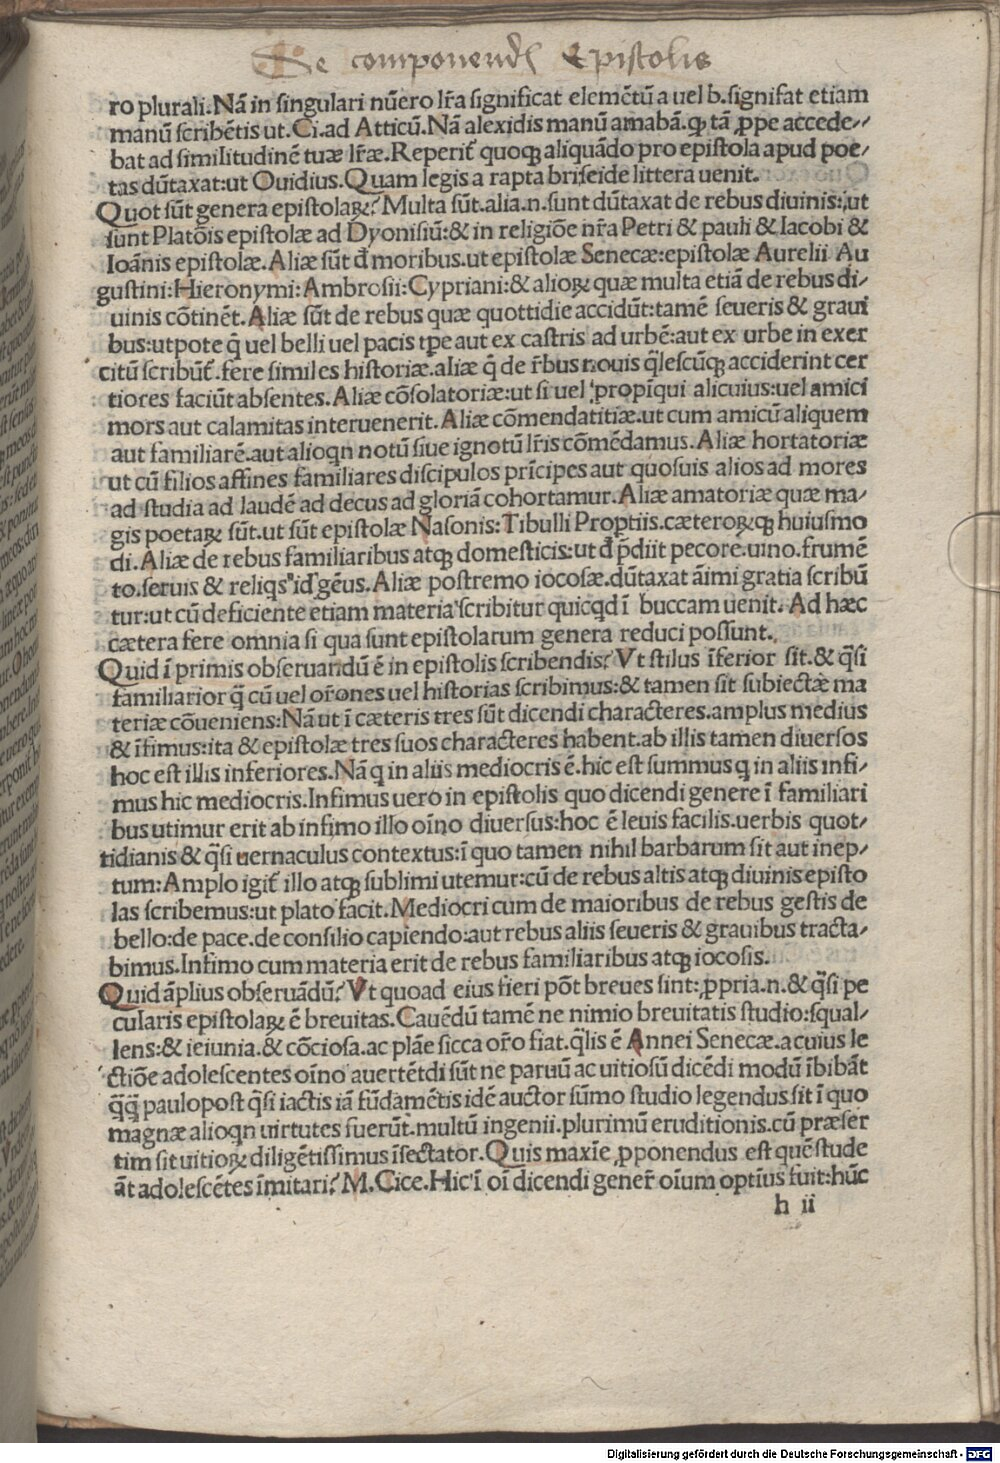 De componend̃ Epistolis
ro plurali.Nã in singulari nũero lr̃a significat elemẽtũ a uel b.signifat etiam
manũ scribẽtis ut.Ci.ad Atticũ.Nã alexidis manũ amabã.ꝙ tã ꝓpe accede//
bat ad similitudinẽ tuæ lr̃æ.Reperit᷑ quoqꝫ aliquãdo pro epistola apud poe/
tas dũtaxat:ut Ouidius.Quam legis a rapta briseide littera uenit.
Quot sũt genera epistolaꝝ? Multa sũt.alia.n.sunt dũtaxat de rebus diuinis:ut
sunt Platõis epistolæ ad Dyonisiũ:& in religiõe nr̃a Petri & pauli & Iacobi &
Ioãnis epistolæ.Aliæ sũt đ moribus.ut epistolæ Senecæ:epistolæ Aurelii Au
gustini:Hieronymi:Ambrosii:Cypriani:& alioꝝ quæ multa etiã de rebus di/
uinis cõtinẽt.Aliæ sũt de rebus quæ quottidie accidũt:tamẽ seueris & graui
bus:utpote q̃ uel belli uel pacis tp̃e aut ex castris ad urbẽ:aut ex urbe in exer
citũ scribũt᷑.fere similes historiæ.aliæ q̃ de r̃bus nouis q̃lescũqꝫ acciderint cer
tiores faciũt absentes.Aliæ cõsolatoriæ:ut si uel propĩqui alicuius:uel amici
mors aut calamitas interuenerit.Aliæ cõmendatitiæ.ut cum amicũ aliquem
aut familiarẽ.aut alioqn notũ siue ignotũ lr̃is cõmẽdamus.Aliæ hortatoriæ
ut cũ filios affines familiares discipulos prĩcipes aut quosuis alios ad mores
ad studia ad laudẽ ad decus ad gloriã cohortamur.Aliæ amatoriæ quæ ma/
gis poetaꝝ sũt.ut sũt epistolæ Nasonis:Tibulli Proptiis.cæteroꝝqꝫ huiusmo
di.Aliæ de rebus familiaribus atqꝫ domesticis:ut đ p̃diit pecore.uino.frumẽ
to.seruis & reliqs id gẽus.Aliæ postremo iocosæ.dũtaxat ãimi gratia scribũ
tur:ut cũ deficiente etiam materia scribitur quicqd ĩ buccam uenit. Ad hæc
cætera fere omnia si qua sunt epistolarum genera reduci possunt.
Quid ĩ primis obseruandũ ẽ in epistolis scribendis? Vt stilus ĩferior sit.& q̃si
familiarior q̃ cũ uel or̃ones uel historias scribimus:& tamen sit subiectæ ma
teriæ cõueniens:Nã ut ĩ cæteris tres sũt dicendi characteres.amplus medius
& ĩfimus:ita & epistolæ tres suos characteres habent.ab illis tamen diuersos
hoc est illis inferiores.Nã q in aliis mediocris ẽ.hic est summus q in aliis infi/
mus hic mediocris.Infimus uero in epistolis quo dicendi genere ĩ familiari
bus utimur erit ab infimo illo oĩno diuersus:hoc ẽ leuis facilis.uerbis quot/
tidianis & q̃si uernaculus contextus:ĩ quo tamen nihil barbarum sit aut inep/
tum:Amplo igit᷑ illo atqꝫ sublimi utemur:cũ de rebus altis atqꝫ diuinis episto
las scribemus:ut plato facit.Mediocri cum de maioribus de rebus gestis de
bello:de pace.de consilio capiendo:aut rebus aliis seueris & grauibus tracta/
bimus.Infimo cum materia erit de rebus familiaribus atqꝫ iocosis.
Quid ãplius obseruãdũ? Vt quoad eius fieri põt breues sint:ꝓpria.n.& q̃si pe
cularis epistolaꝝ ẽ breuitas.Cauẽdũ tamẽ ne nimio breuitatis studio:squal/
lens:& ieiunia.& cõciosa.ac plãe sicca or̃o fiat.q̃lis ẽ Annei Senecæ.a cuius le
ctiõe adolescentes oĩno auertẽtdi sũt ne paruũ ac uitiosũ dicẽdi modũ ĩbibãt
q̃q̃ paulopost q̃si iactis iã fũdamẽtis idẽ auctor sũmo studio legendus sit ĩ quo
magnæ alioqn uirtutes fuerũt.multũ ingenii.plurimũ eruditionis.cũ præser
tim sit uitioꝝ diligẽtissimus ĩsectator.Quis maxĩe ꝓponendus est quẽ stude
ãt adolescẽtes ĩmitari? M.Cice.Hic ĩ oĩ dicendi gener̃ oĩum optĩus fuit:hũc
h ii
Digitalisierung gefördert durch die Deutsche Forschungsgemeinschaft - DFG